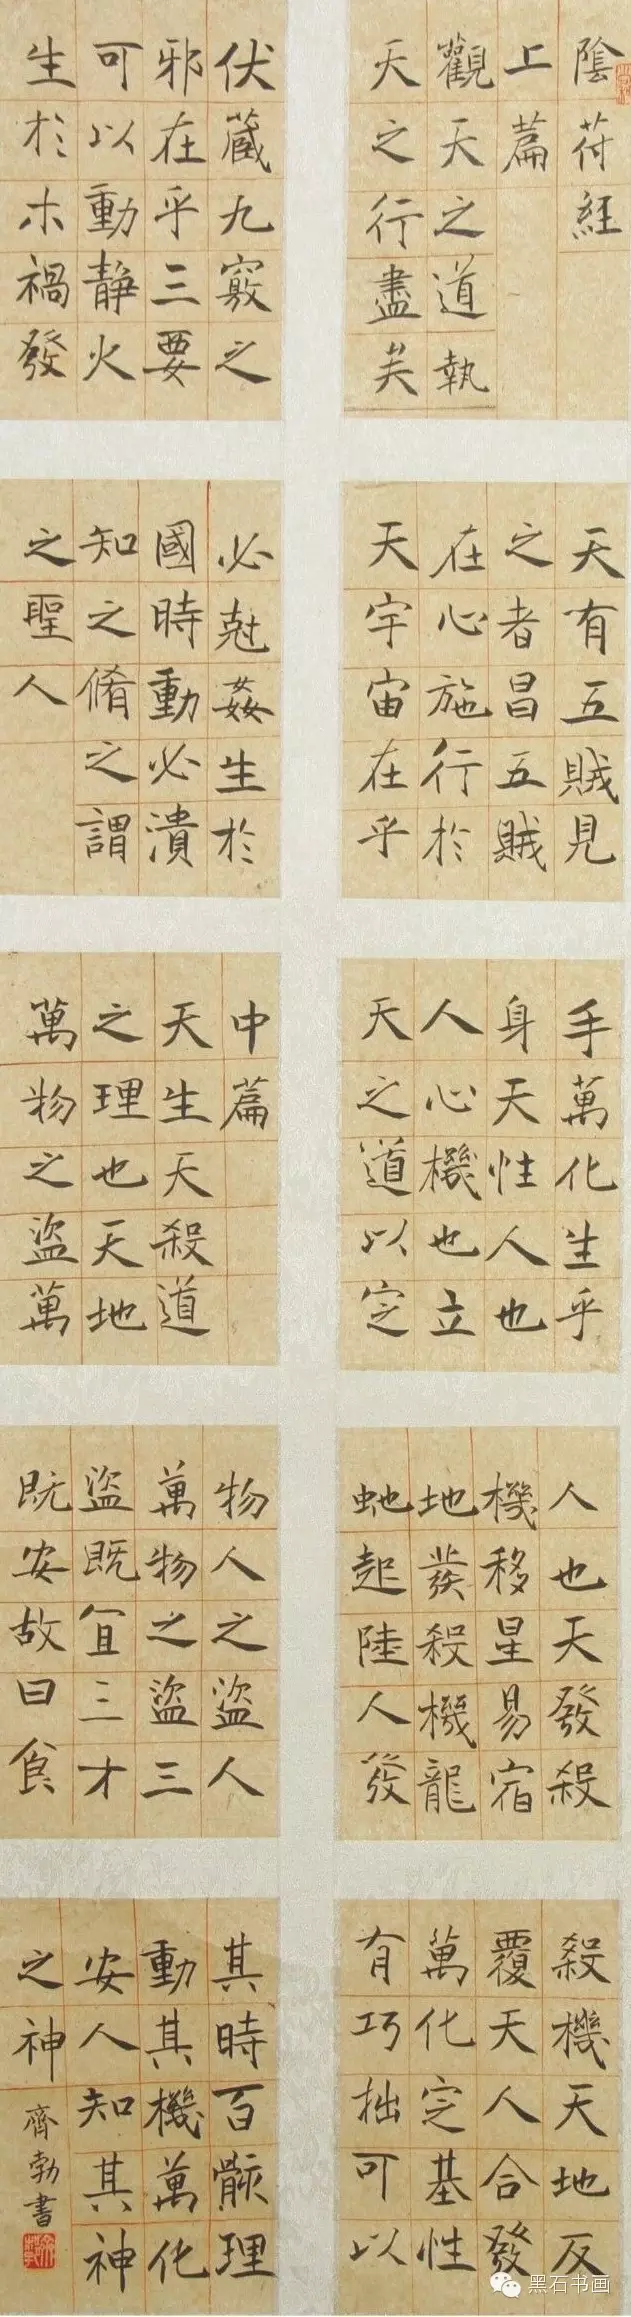 陰苻經
上篇
觀天之道執
天之行盡矣
天有五賊見
之者昌五賊
在心施行於
天宇宙在乎
手萬化生乎
身天性人也
人心機也立
天之道以定
人也天發殺
機移星易宿
地發殺機龍
虵起陸人發
殺機天地反
覆天人合發
萬化定基性
有巧拙可以
伏藏九竅之
邪在乎三要
可以動靜火
生於木禍發
必尅姦生於
國時動必潰
知之脩之謂
之聖人
中篇
天生天殺道
之理也天地
萬物之盜萬
物人之盜人
萬物之盜三
盜既宜三才
既安故曰食
其時百骸理
動其機萬化
安人知其神
之神
齊勃書
黑石书画